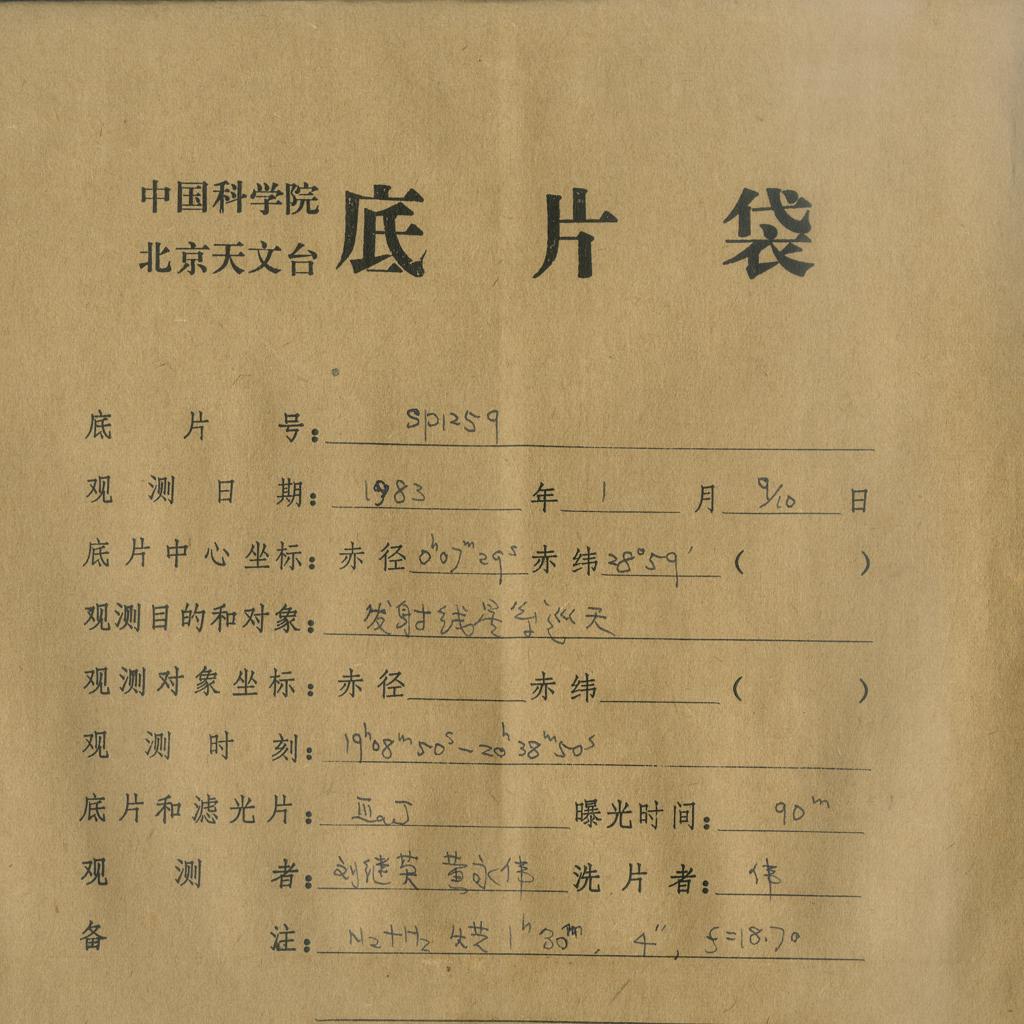 中国科学院
北京天文台
底片袋
底片号：SP1259
观测日期：1983年1月9/10日
底片中心坐标：赤径0ʰ07ᵐ29ˢ赤纬28°59′（ ）
观测目的和对象：发射线星系巡天
观测对象坐标：赤径 赤纬 （ ）
观测时刻：19ʰ08ᵐ50ˢ–20ʰ38ᵐ50ˢ
底片和滤光片：ⅢaJ 曝光时间：90ᵐ
观测者：刘继英 董永伟 洗片者：伟
备注：N₂+H₂ 1ʰ30ᵐ, 4″, f=18.70